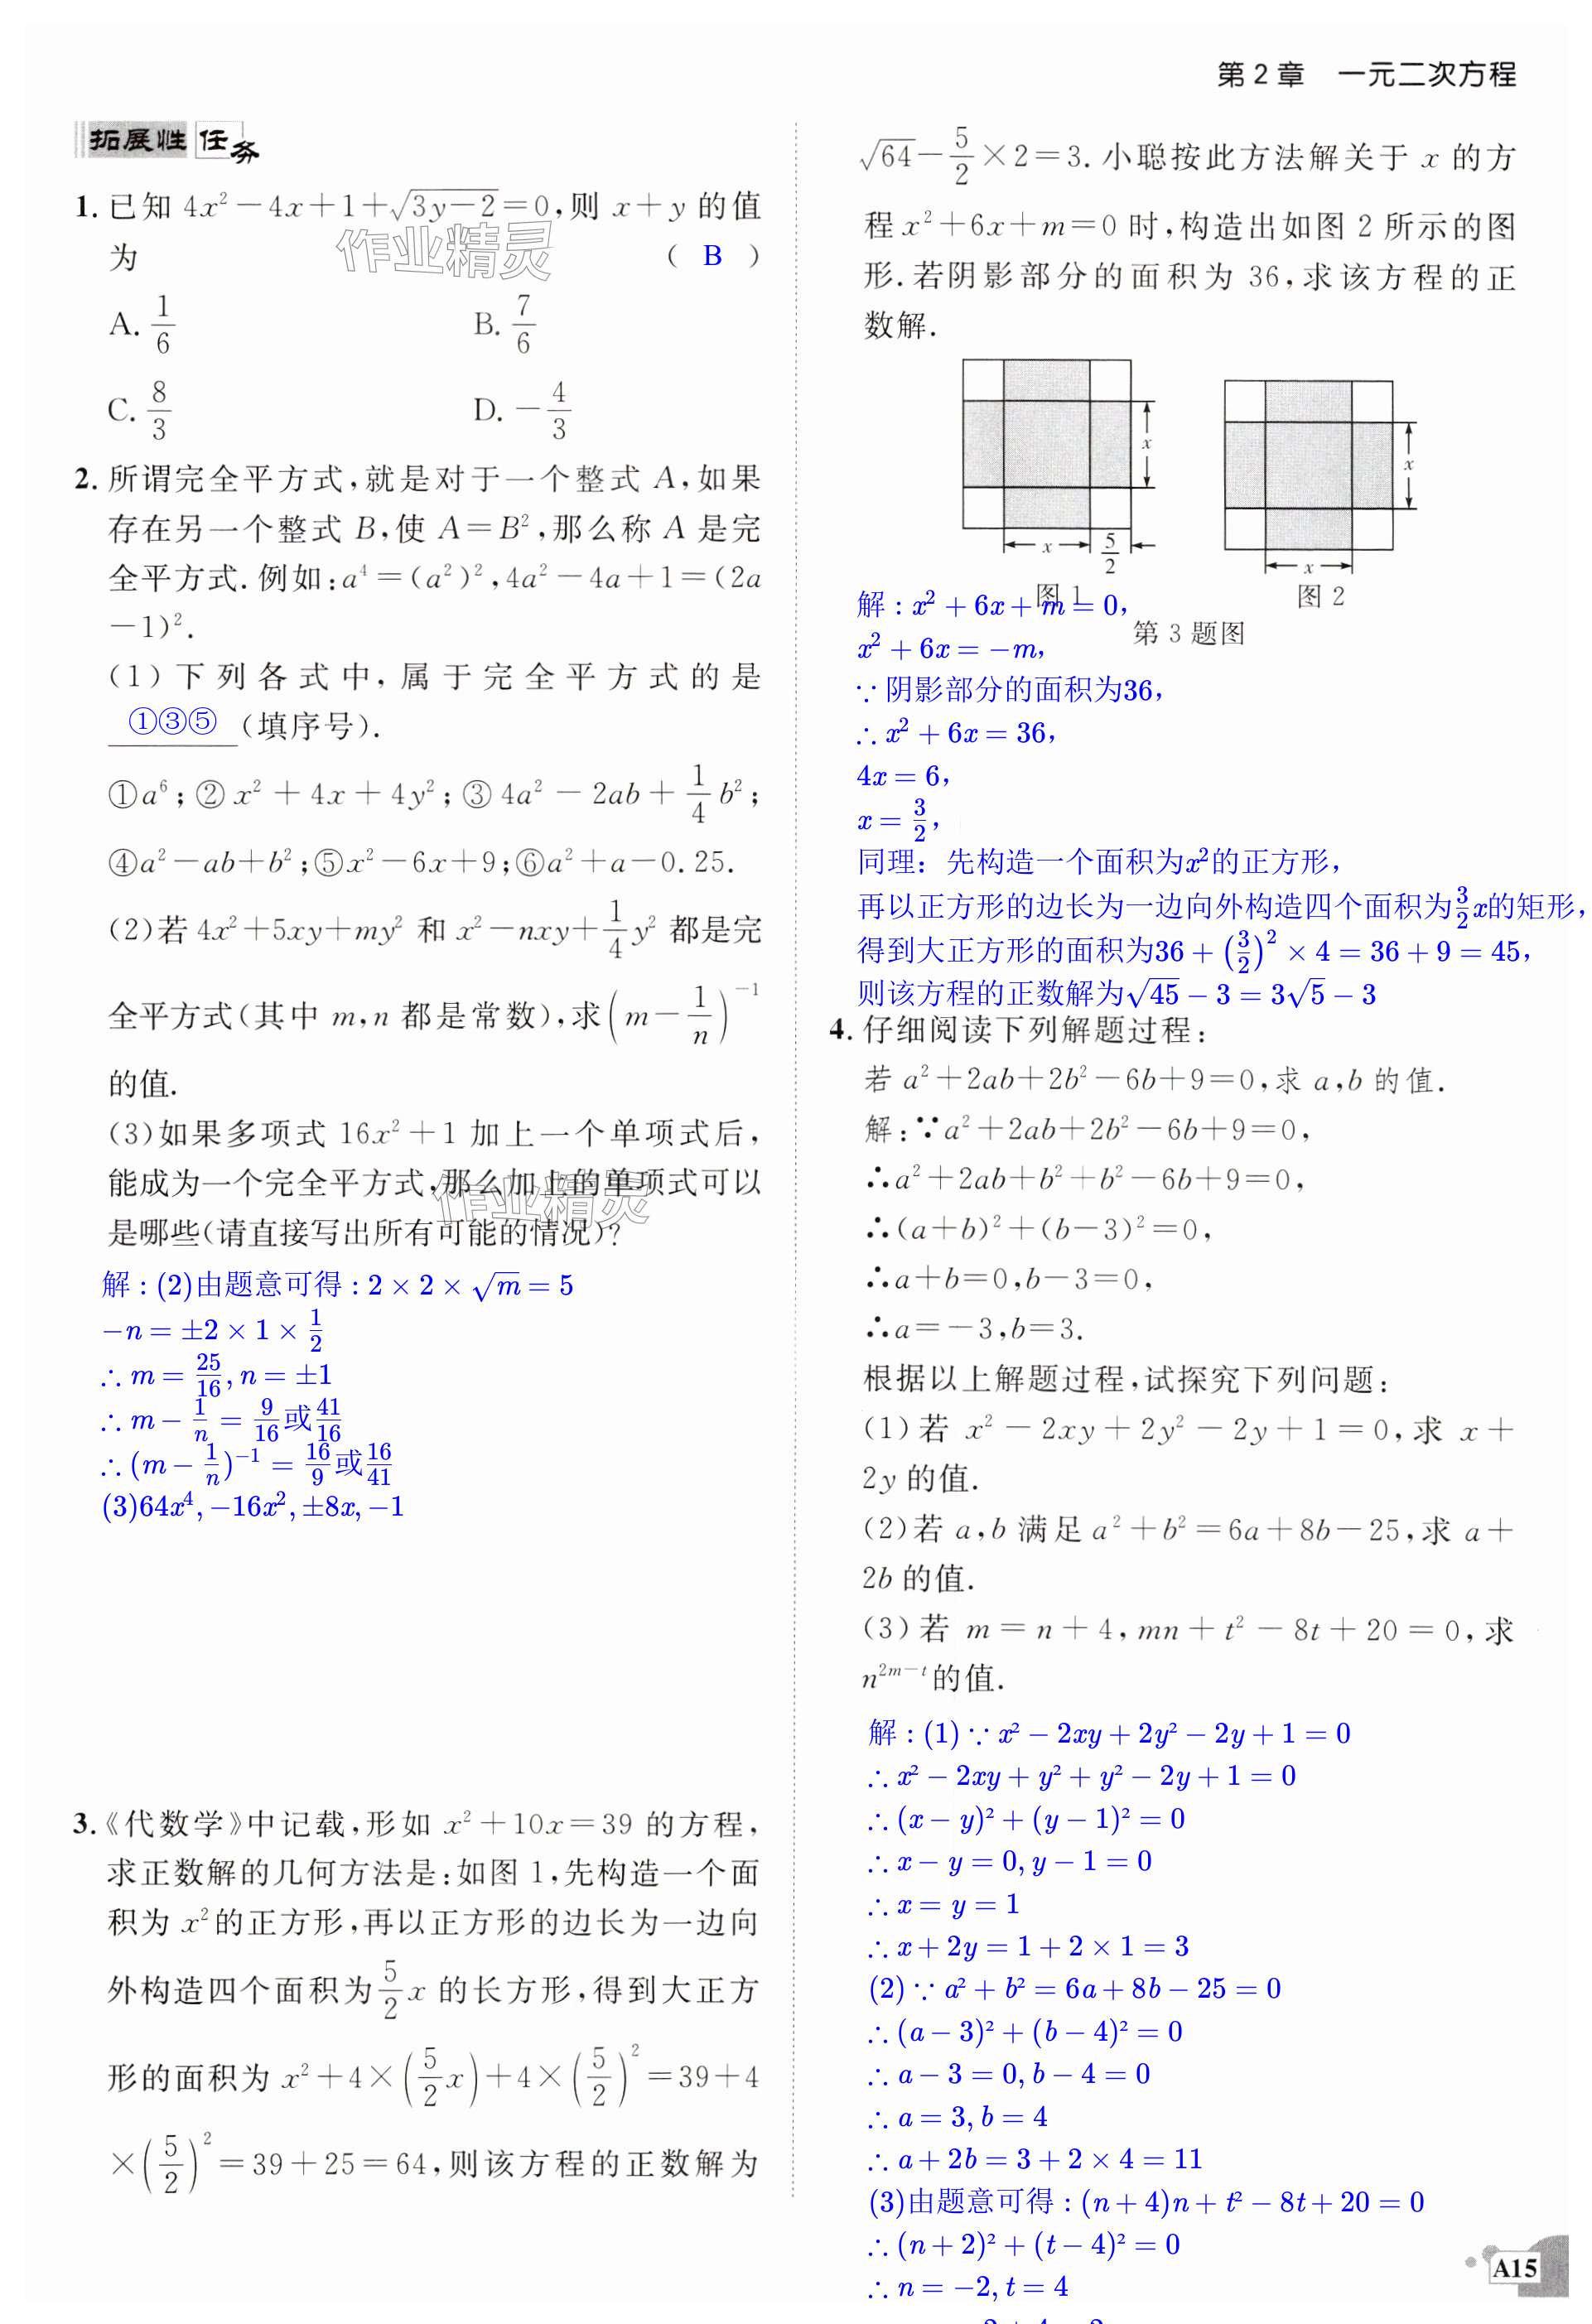 第 2 章　一元二次方程
拓展性任务
1. 已知 4x²－4x＋1＋√(3y－2)＝0,则 x＋y 的值
为 ( B )
A. 1/6 B. 7/6
C. 8/3 D. －4/3
2. 所谓完全平方式,就是对于一个整式 A,如果
存在另一个整式 B,使 A＝B²,那么称 A 是完
全平方式. 例如:a⁴＝(a²)²,4a²－4a＋1＝(2a
－1)².
(1) 下列各式中, 属于完全平方式的是
①③⑤ (填序号).
①a⁶; ② x² ＋ 4x ＋ 4y²; ③ 4a² － 2ab ＋ 1/4 b²;
④a²－ab＋b²;⑤x²－6x＋9;⑥a²＋a－0.25.
(2)若 4x²＋5xy＋my² 和 x²－nxy＋1/4 y² 都是完
全平方式(其中 m,n 都是常数),求(m－1/n)⁻¹
的值.
(3)如果多项式 16x²＋1 加上一个单项式后,
能成为一个完全平方式,那么加上的单项式可以
是哪些(请直接写出所有可能的情况)?
解 : (2)由题意可得 : 2 × 2 × √m = 5
−n = ±2 × 1 × 1/2
∴ m = 25/16, n = ±1
∴ m − 1/n = 9/16或41/16
∴ (m − 1/n)⁻¹ = 16/9或16/41
(3)64x⁴, −16x², ±8x, −1
3. 《代数学》中记载,形如 x²＋10x＝39 的方程,
求正数解的几何方法是:如图 1,先构造一个面
积为 x²的正方形,再以正方形的边长为一边向
外构造四个面积为5/2 x 的长方形,得到大正方
形的面积为 x²＋4×(5/2 x)＋4×(5/2)²＝39＋4
×(5/2)²＝39＋25＝64,则该方程的正数解为
√64－5/2×2＝3. 小聪按此方法解关于 x 的方
程 x²＋6x＋m＝0 时,构造出如图 2 所示的图
形. 若阴影部分的面积为 36,求该方程的正
数解.
x
x
x 5/2
x
图 1
图 2
第 3 题图
解 : x² + 6x + m = 0，
x² + 6x = −m，
∵ 阴影部分的面积为36，
∴ x² + 6x = 36，
4x = 6，
x = 3/2，
同理：先构造一个面积为x²的正方形，
再以正方形的边长为一边向外构造四个面积为3/2 x的矩形，
得到大正方形的面积为36 + (3/2)² × 4 = 36 + 9 = 45，
则该方程的正数解为√45 − 3 = 3√5 − 3
4. 仔细阅读下列解题过程:
若 a²＋2ab＋2b²－6b＋9＝0,求 a,b 的值.
解:∵a²＋2ab＋2b²－6b＋9＝0,
∴a²＋2ab＋b²＋b²－6b＋9＝0,
∴(a＋b)²＋(b－3)²＝0,
∴a＋b＝0,b－3＝0,
∴a＝－3,b＝3.
根据以上解题过程,试探究下列问题:
(1) 若 x² － 2xy ＋ 2y² － 2y ＋ 1 ＝ 0, 求 x ＋
2y 的值.
(2)若 a,b 满足 a²＋b²＝6a＋8b－25,求 a＋
2b 的值.
(3) 若 m ＝ n ＋ 4, mn ＋ t² － 8t ＋ 20 ＝ 0, 求
n²ᵐ⁻ᵗ的值.
解 : (1) ∵ x² − 2xy + 2y² − 2y + 1 = 0
∴ x² − 2xy + y² + y² − 2y + 1 = 0
∴ (x − y)² + (y − 1)² = 0
∴ x − y = 0, y − 1 = 0
∴ x = y = 1
∴ x + 2y = 1 + 2 × 1 = 3
(2) ∵ a² + b² = 6a + 8b − 25 = 0
∴ (a − 3)² + (b − 4)² = 0
∴ a − 3 = 0, b − 4 = 0
∴ a = 3, b = 4
∴ a + 2b = 3 + 2 × 4 = 11
(3)由题意可得 : (n + 4)n + t² − 8t + 20 = 0
∴ (n + 2)² + (t − 4)² = 0
∴ n = −2, t = 4
A15
作业精灵
作业精灵